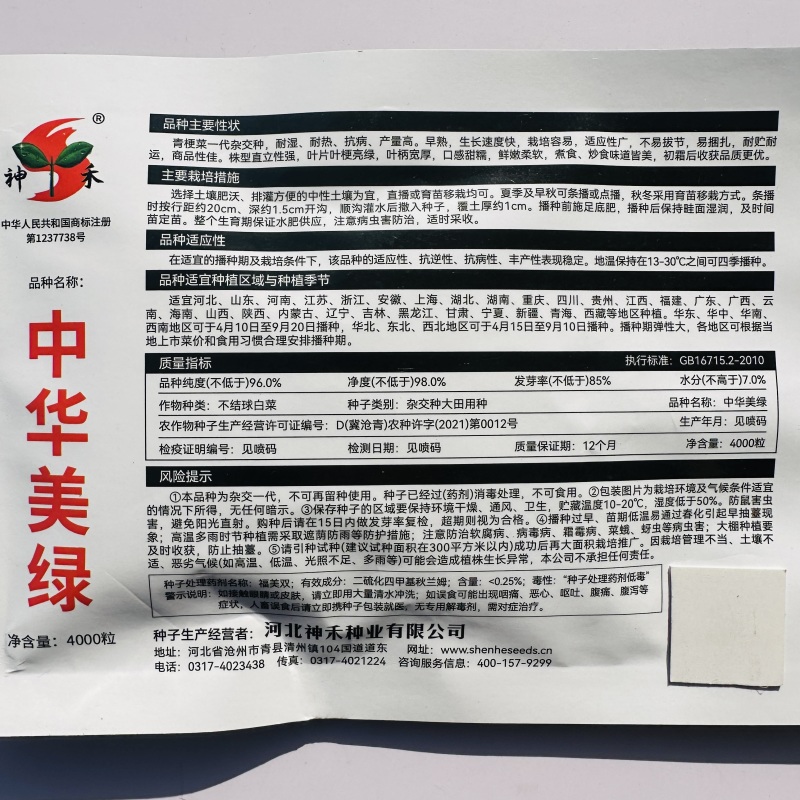 ®
神禾
中华人民共和国商标注册
第1237738号
品种名称：
中华美绿
净含量：4000粒
品种主要性状
青梗菜一代杂交种，耐湿、耐热、抗病、产量高。早熟，生长速度快，栽培容易，适应性广，不易拔节，易捆扎，耐贮耐
运，商品性佳。株型直立性强，叶片叶梗亮绿，叶柄宽厚，口感甜糯，鲜嫩柔软，煮食、炒食味道皆美，初霜后收获品质更优。
主要栽培措施
选择土壤肥沃、排灌方便的中性土壤为宜，直播或育苗移栽均可。夏季及早秋可条播或点播，秋冬采用育苗移栽方式。条播
时按行距约20cm、深约1.5cm开沟，顺沟灌水后撒入种子，覆土厚约1cm。播种前施足底肥，播种后保持畦面湿润，及时间
苗定苗。整个生育期保证水肥供应，注意病虫害防治，适时采收。
品种适应性
在适宜的播种期及栽培条件下，该品种的适应性、抗逆性、抗病性、丰产性表现稳定。地温保持在13-30℃之间可四季播种。
品种适宜种植区域与种植季节
适宜河北、山东、河南、江苏、浙江、安徽、上海、湖北、湖南、重庆、四川、贵州、江西、福建、广东、广西、云
南、海南、山西、陕西、内蒙古、辽宁、吉林、黑龙江、甘肃、宁夏、新疆、青海、西藏等地区种植。华东、华中、华南、
西南地区可于4月10日至9月20日播种，华北、东北、西北地区可于4月15日至9月10日播种。播种期弹性大，各地区可根据当
地上市菜价和食用习惯合理安排播种期。
质量指标 执行标准：GB16715.2-2010
品种纯度(不低于)96.0% 净度(不低于)98.0% 发芽率(不低于)85% 水分(不高于)7.0%
作物种类：不结球白菜 种子类别：杂交种大田用种 品种名称：中华美绿
农作物种子生产经营许可证编号：D(冀沧青)农种许字(2021)第0012号 生产年月：见喷码
检疫证明编号：见喷码 检测日期：见喷码 质量保证期：12个月 净含量：4000粒
风险提示
①本品种为杂交一代，不可再留种使用。种子已经过(药剂)消毒处理，不可食用。②包装图片为栽培环境及气候条件适宜
的情况下所得，无任何暗示。③保存种子的区域要保持环境干燥、通风、卫生，贮藏温度10-20℃，湿度低于50%。防鼠害虫
害，避免阳光直射。购种后请在15日内做发芽率复检，超期则视为合格。④播种过早、苗期低温易通过春化引起早抽薹现
象；高温多雨时节种植需采取遮荫防雨等防护措施；注意防治软腐病、病毒病、霜霉病、菜蛾、蚜虫等病虫害；大棚种植要
及时收获，防止抽薹。⑤请引种试种(建议试种面积在300平方米以内)成功后再大面积栽培推广。因栽培管理不当、土壤不
适、恶劣气候(如高温、低温、光照不足、多雨等)可能会造成植株生长异常，本公司不承担任何责任。
种子处理药剂名称：福美双；有效成分：二硫化四甲基秋兰姆；含量：<0.25%；毒性：“种子处理药剂低毒”
警示说明：如接触眼睛或皮肤，请立即用大量清水冲洗；如误食可能出现咽痛、恶心、呕吐、腹痛、腹泻等
症状，人畜误食后请立即携种子包装就医。无专用解毒剂，需对症治疗。
种子生产经营者：河北神禾种业有限公司
地址：河北省沧州市青县清州镇104国道道东 网址：www.shenheseeds.cn
电话：0317-4023438 传真：0317-4021224 咨询服务信息：400-157-9299